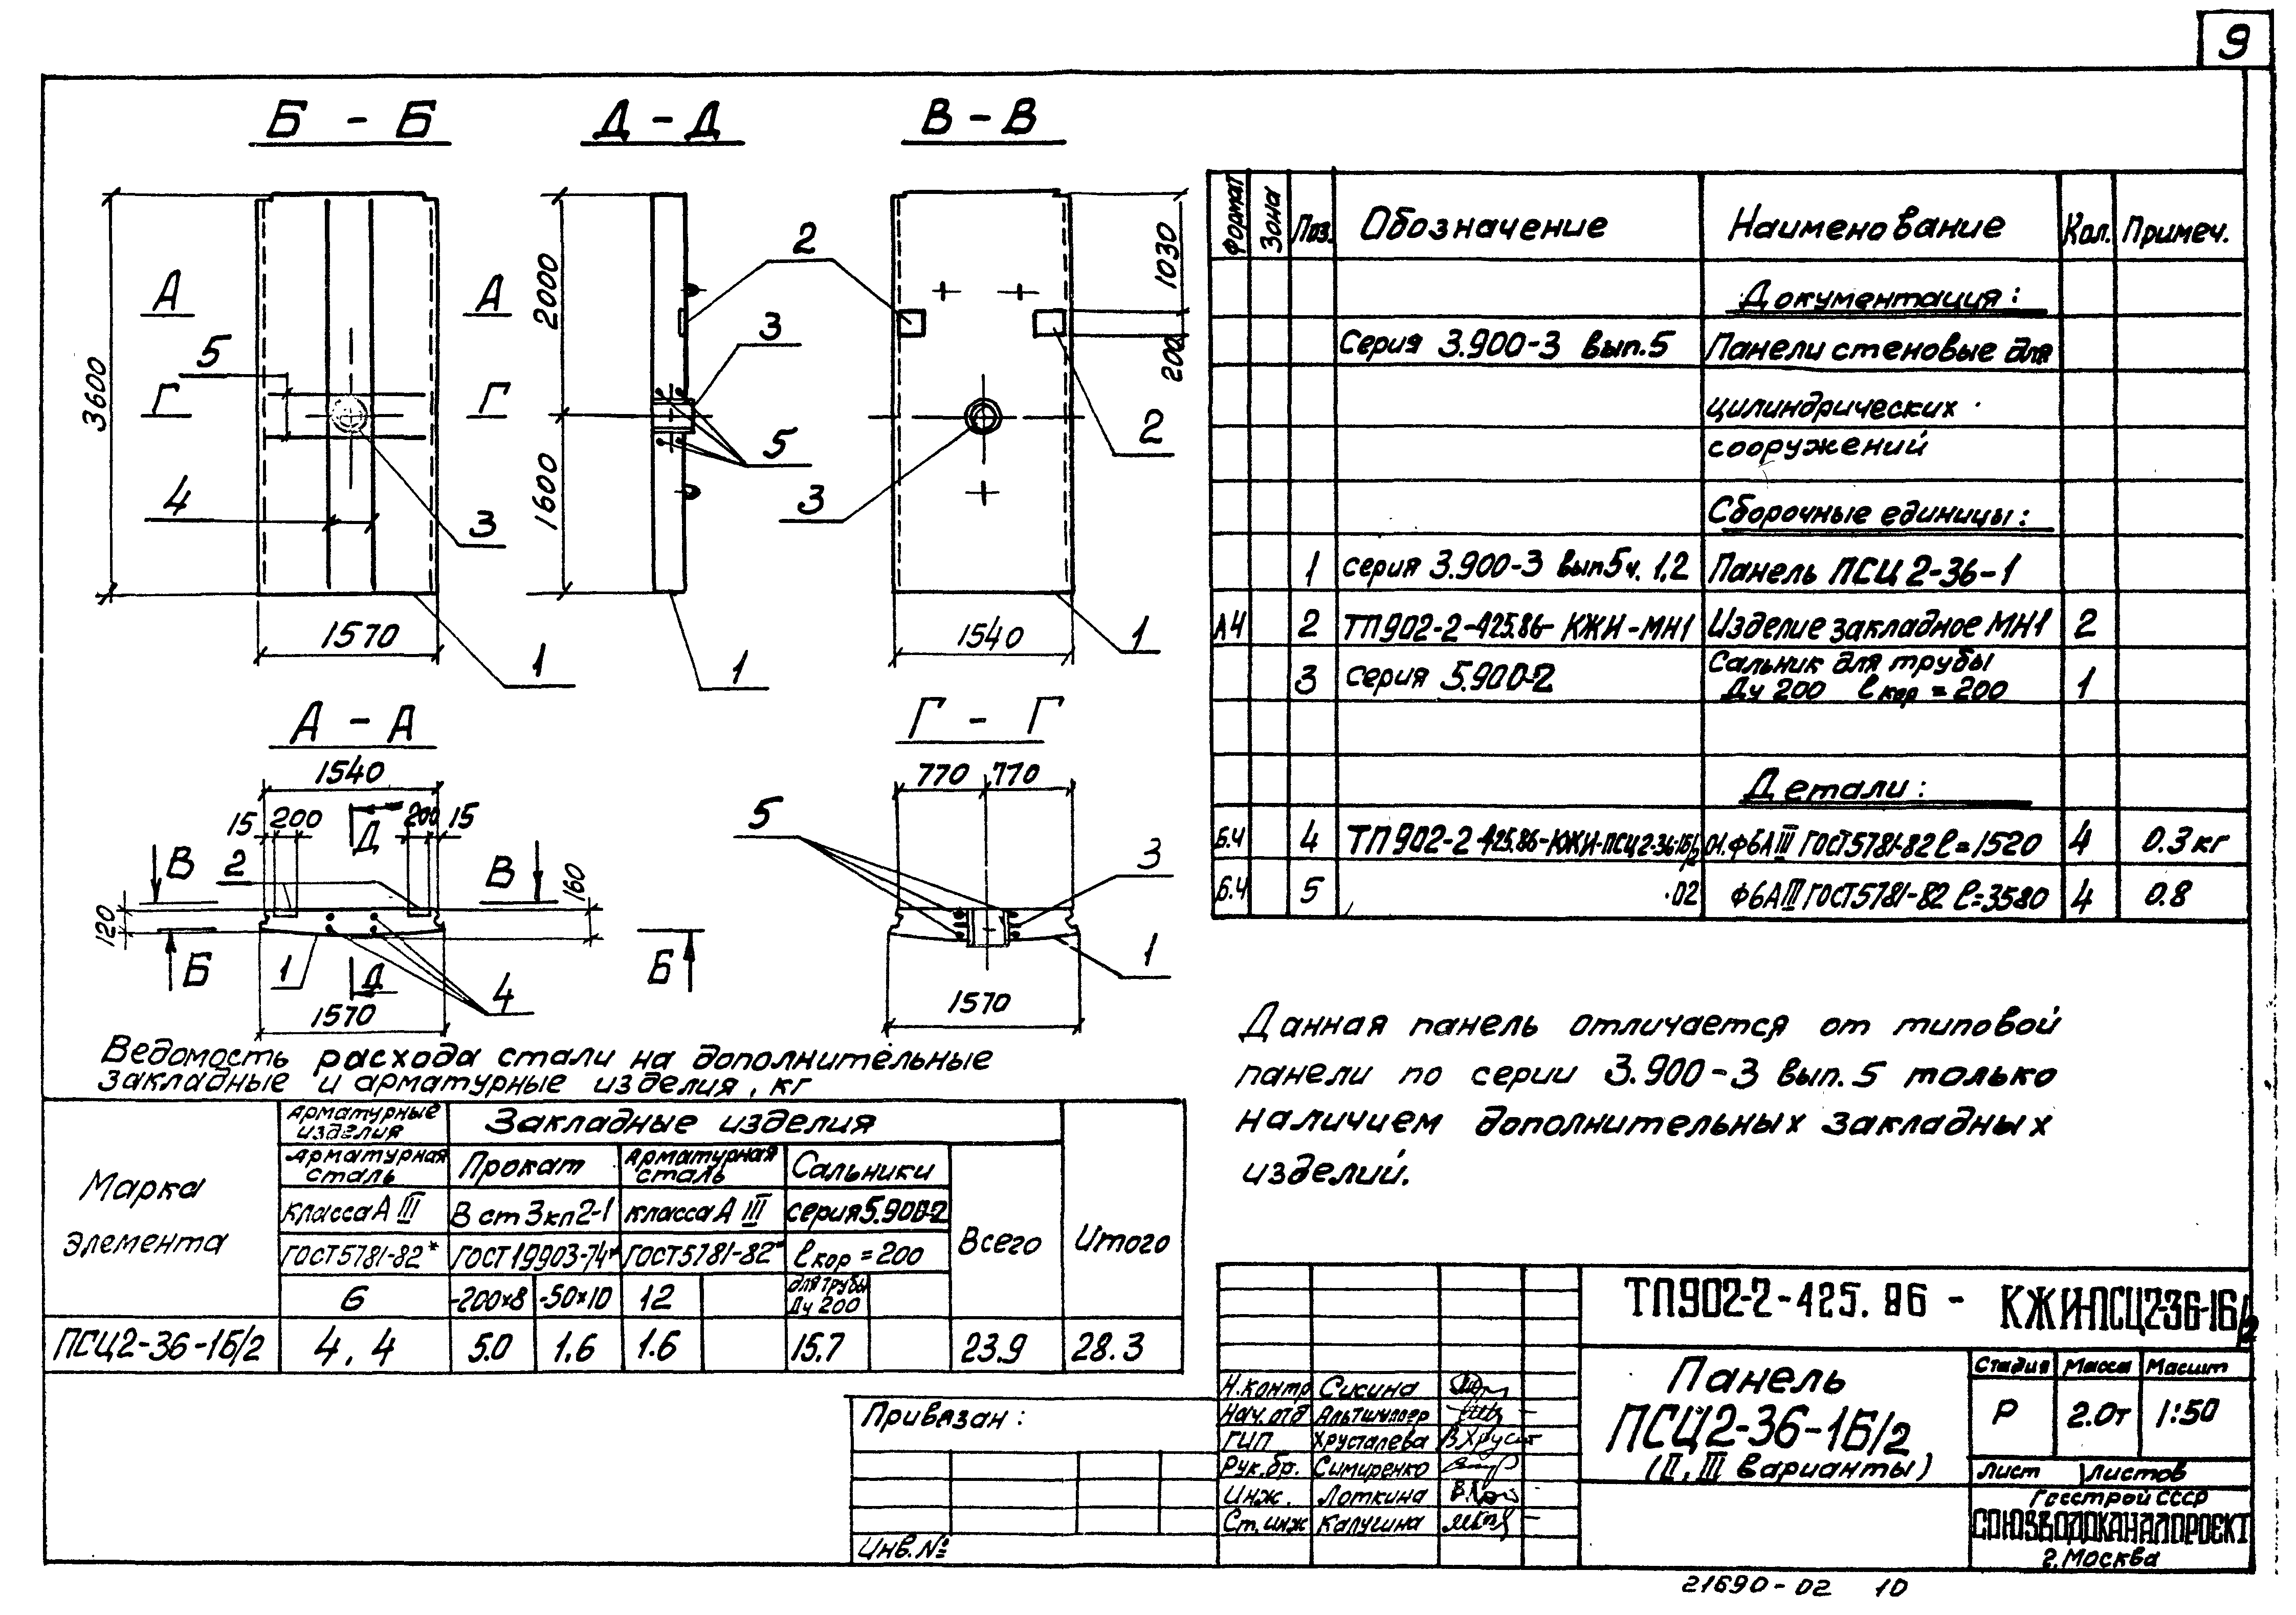 9
Б - Б
Д - Д
В - В
А
А
Г
Г
5
4
3
3600
1570
1
2000
1600
2
3
5
3
1
1030
200
2
1540
1
А - А
1540
15 200 200 15
Д
В
В
2
120
160
Б
Б
1
Д
4
1570
Г - Г
770 770
5
3
1
1570
Формат Зона Поз. Обозначение Наименование Кол. Примеч.
Документация:
Серия 3.900-3 вып.5 Панели стеновые для
цилиндрических
сооружений
Сборочные единицы:
1 серия 3.900-3 вып5ч.1,2 Панель ПСЦ2-36-1
А4 2 ТП902-2-425.86-КЖИ-МН1 Изделие закладное МН1 2
3 серия 5.900-2 Сальник для трубы
Ду 200 ℓкор = 200 1
Детали:
Б.4 4 ТП902-2-425.86-КЖИ-ПСЦ2-36-1Б/2 01. Ф6АIII ГОСТ5781-82 ℓ=1520 4 0.3кг
Б.4 5 .02 Ф6АIII ГОСТ5781-82 ℓ=3580 4 0.8
Данная панель отличается от типовой
панели по серии 3.900-3 вып.5 только
наличием дополнительных закладных
изделий.
Ведомость расхода стали на дополнительные
закладные и арматурные изделия, кг
Марка элемента
Арматурные изделия
Закладные изделия
Всего
Итого
Арматурная сталь
Прокат
Арматурная сталь
Сальники
класса А III
В ст 3 кп2-1
класса А III
серия 5.900-2
ГОСТ5781-82*
ГОСТ19903-74*
ГОСТ5781-82*
ℓкор = 200
6
-200×8
-50×10
12
для трубы Ду 200
ПСЦ2-36-1Б/2 4.4 5.0 1.6 1.6 15.7 23.9 28.3
Привязан:
Инв.№
ТП902-2-425.86 - КЖИ-ПСЦ2-36-1Б/2
Н.контр Сисина
Нач.отд Альтшуллер
ГИП Хрусталева
Рук.бр. Симиренко
Инж. Лоткина
Ст.инж Калушна
Панель
ПСЦ2-36-1Б/2
(II, III варианты)
Стадия Масса Масшт
Р 2.0т 1:50
Лист Листов
Госстрой СССР
СОЮЗВОДОКАНАЛПРОЕКТ
г.Москва
21690-02 10